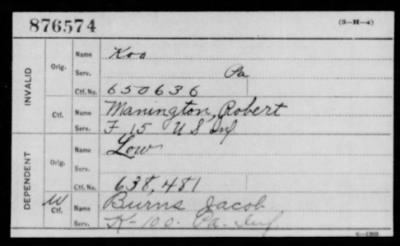 876574 (3—H—4)
INVALID
Orig.
Name Koo
Serv. Pa
Ctf. No. 650636
Ctf.
Name Manington, Robert
Serv. F 15 U S Inf
DEPENDENT
Orig.
Name Low
Serv.
638,481
W Ctf.
Name Burns Jacob
Serv. K-100. Pa. Inf